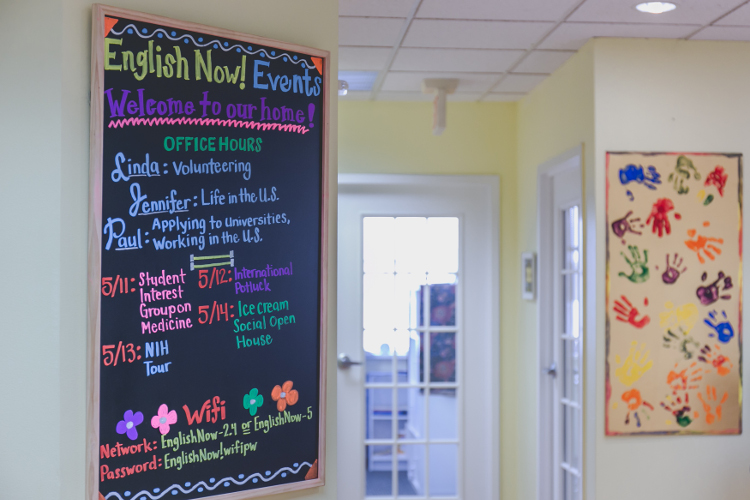 English Now! Events
Welcome to our home!
OFFICE HOURS
Linda: Volunteering
Jennifer: Life in the U.S.
Paul: Applying to universities,
Working in the U.S.
5/11: Student
Interest
Groupon
Medicine
5/12: International
Potluck
5/14: Ice cream
Social Open
House
5/13: NIH
Tour
Wifi
Network: EnglishNow-2.4 or EnglishNow-5
Password: EnglishNow!wifipw